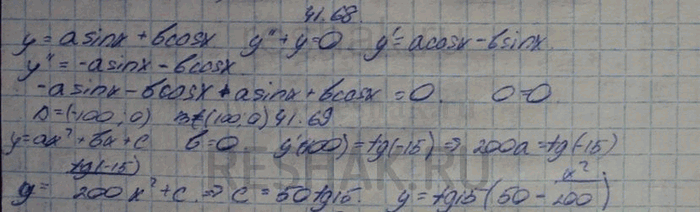 41.68.
y = a sinx + b cosx   y'' + y = 0   y' = a cosx - b sinx
y'' = -a sinx - b cosx
-a sinx - b cosx + a sinx + b cosx = 0   0 = 0
D = (-100; 0)   (100; 0)   41.69
y = ax² + bx + c   b = 0   y'(100) = tg(-15) ⇒ 200a = tg(-15)
y = tg(-15)/200 x² + c ⇒ c = 50 tg15.   y = tg15 (50 - x²/200)
RESHAK.RU